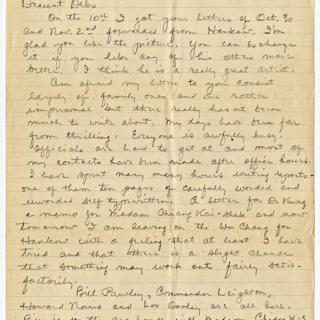 Dearest Debs
On the 10th I got your letters of Oct. 30
and Nov. 2nd forwarded from Hankow. I'm
glad you like the picture. You can exchange
it if you like any of his others more
better. I think he is a really great artist.
Am afraid my letters to you consist
largely of family ones and are rather
impersonal but there really hasn't been
much to write about. My days have been far
from thrilling. Everyone is awfully busy.
Officials are hard to get at and most of
my contacts have been made after office hours.
I have spent many many hours writing reports -
one of them ten pages of carefully worded and
reworded self typewritten. A letter for Dr Kung
a memo for Madam Chiang Kai-shek and now
tomorrow I am leaving on the Wu Chang for
Hankow with a feeling that at least I have
tried and that there is a slight chance
that something may work out fairly satis-
factorily
Bill Pawley, Commander Leighton,
Howard Norris and are all here.